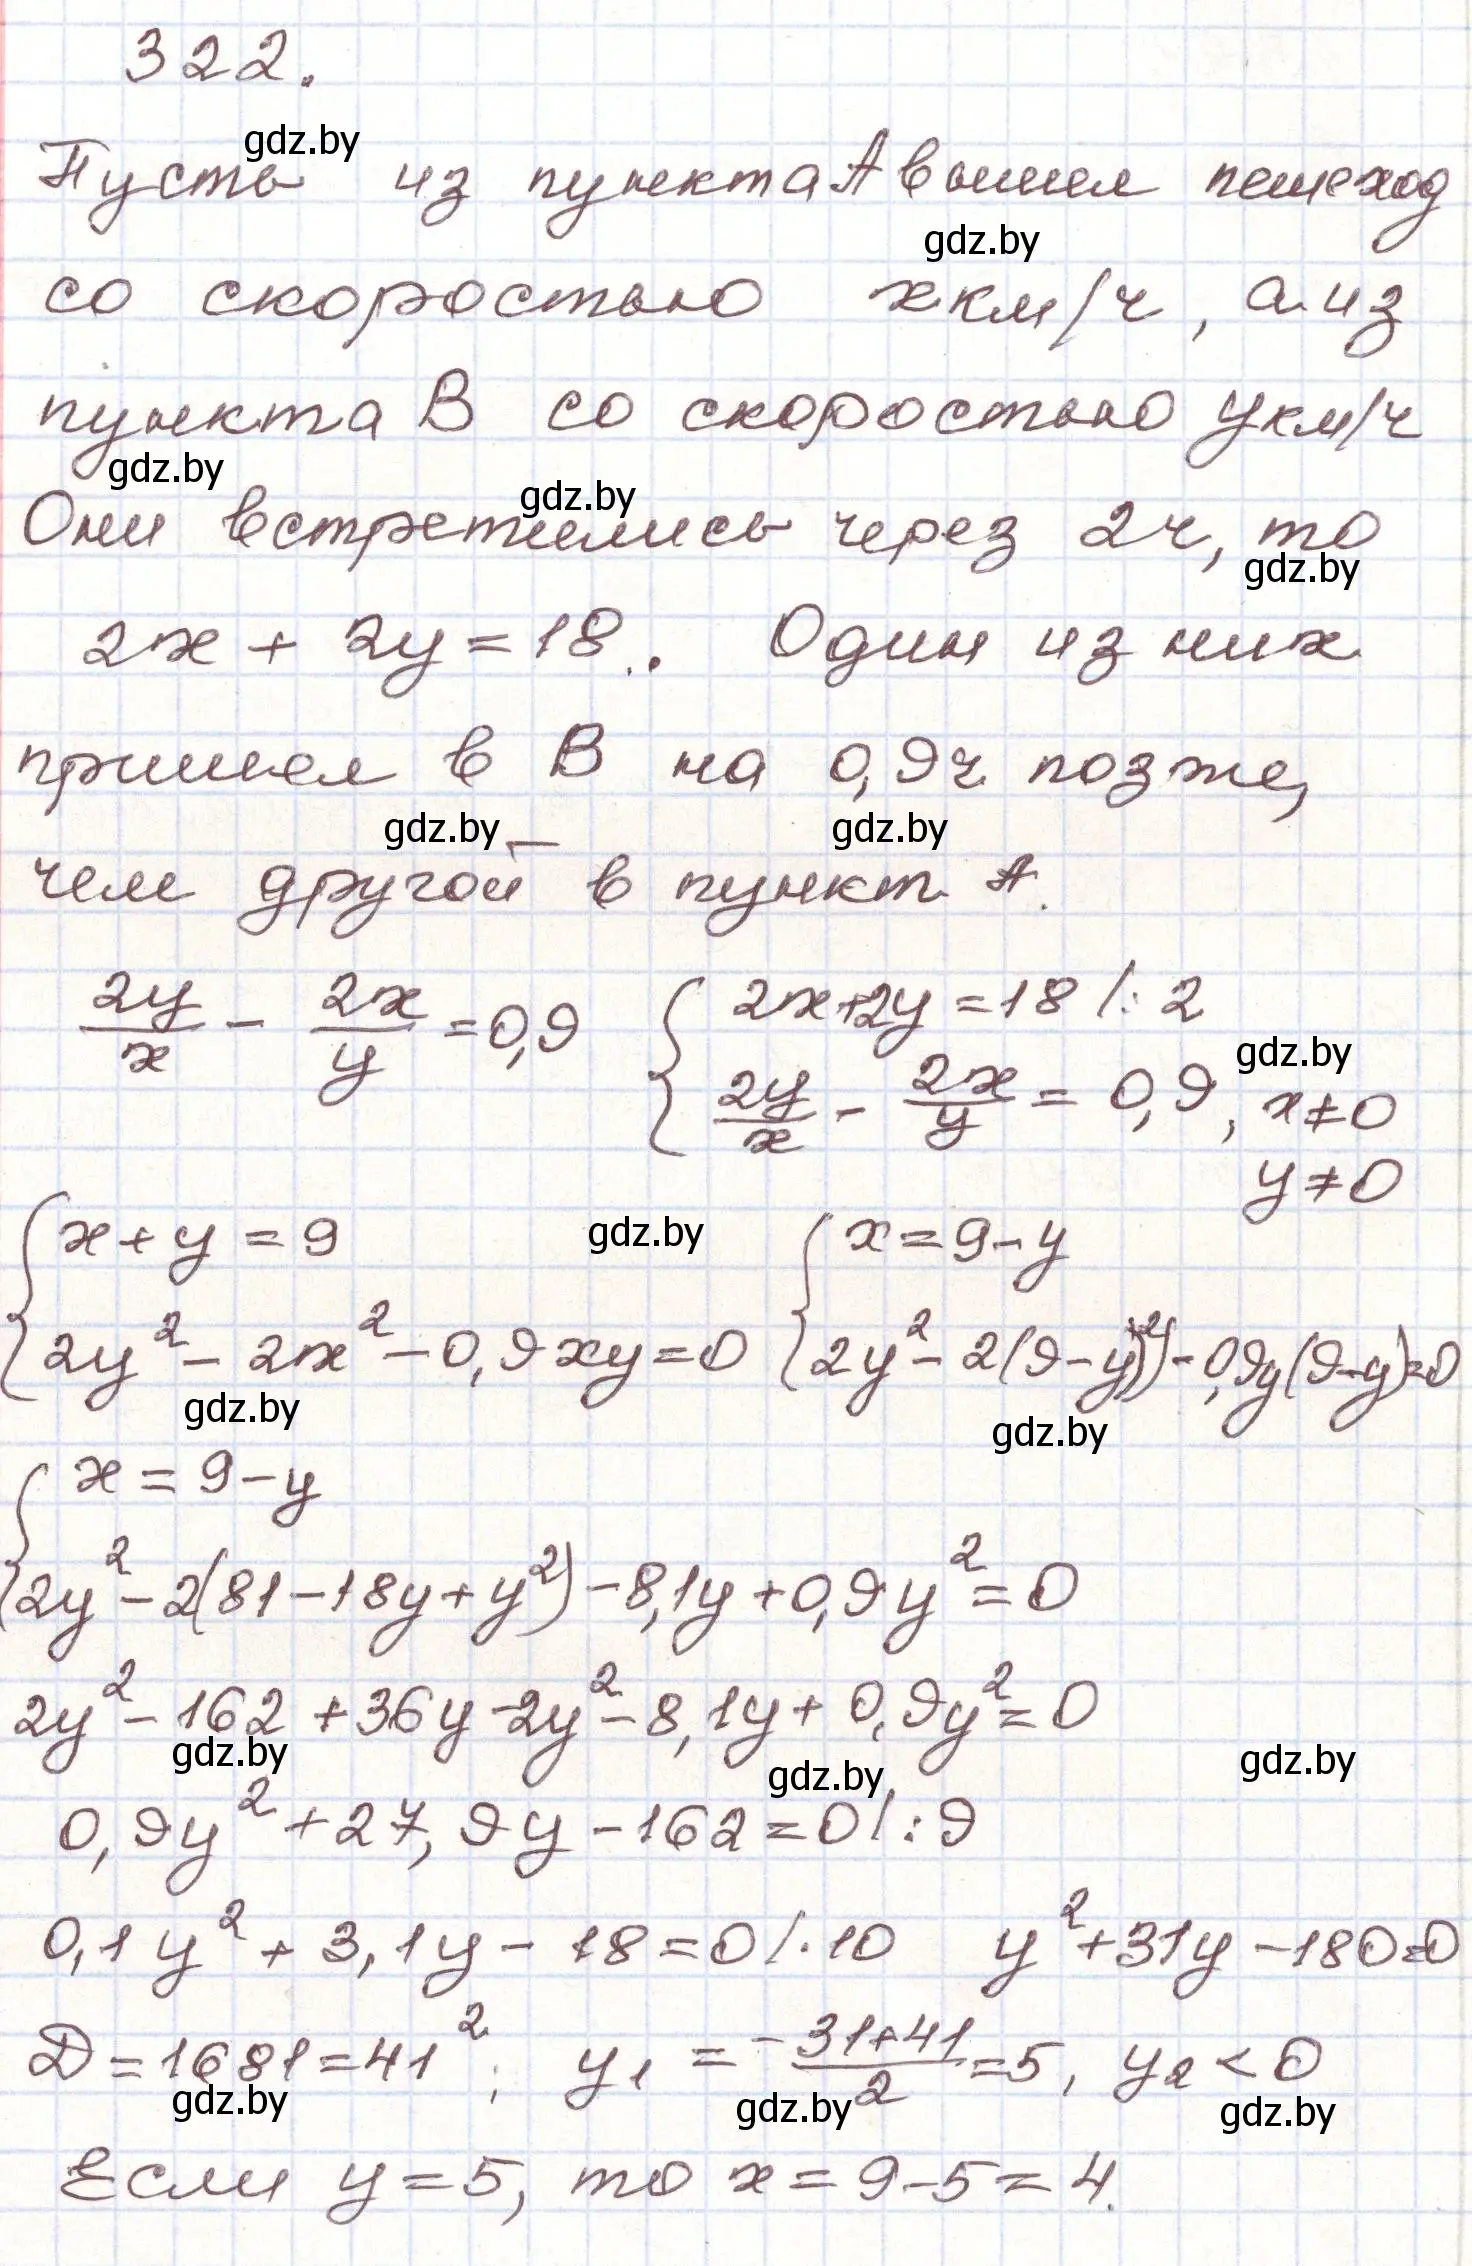 322.
gdz.by
Пусть из пункта А вышел пешеход
gdz.by
со скоростью x км/ч, а из
пункта В со скоростью y км/ч
gdz.by gdz.by
Они встретились через 2ч, то
gdz.by
2x + 2y = 18. Один из них
пришел в В на 0,9ч позже,
gdz.by gdz.by
чем другой в пункт А.
2y/x - 2x/y = 0,9 { 2x+2y = 18 /: 2
gdz.by
2y/x - 2x/y = 0,9, x≠0
y≠0
{ x+y = 9 gdz.by { x = 9-y
2y² - 2x² - 0,9xy = 0 2y² - 2(9-y)² - 0,9y(9-y)=0
gdz.by gdz.by
{ x = 9-y
2y² - 2(81-18y+y²) - 8,1y + 0,9y² = 0
2y² - 162 + 36y - 2y² - 8,1y + 0,9y² = 0
gdz.by gdz.by gdz.by
0,9y² + 27,9y - 162 = 0 /: 9
0,1y² + 3,1y - 18 = 0 /·10 y² + 31y - 180=0
D = 1681 = 41²; y₁ = -31+41/2 = 5, y₂ < 0
gdz.by gdz.by gdz.by
Если y = 5, то x = 9-5 = 4.